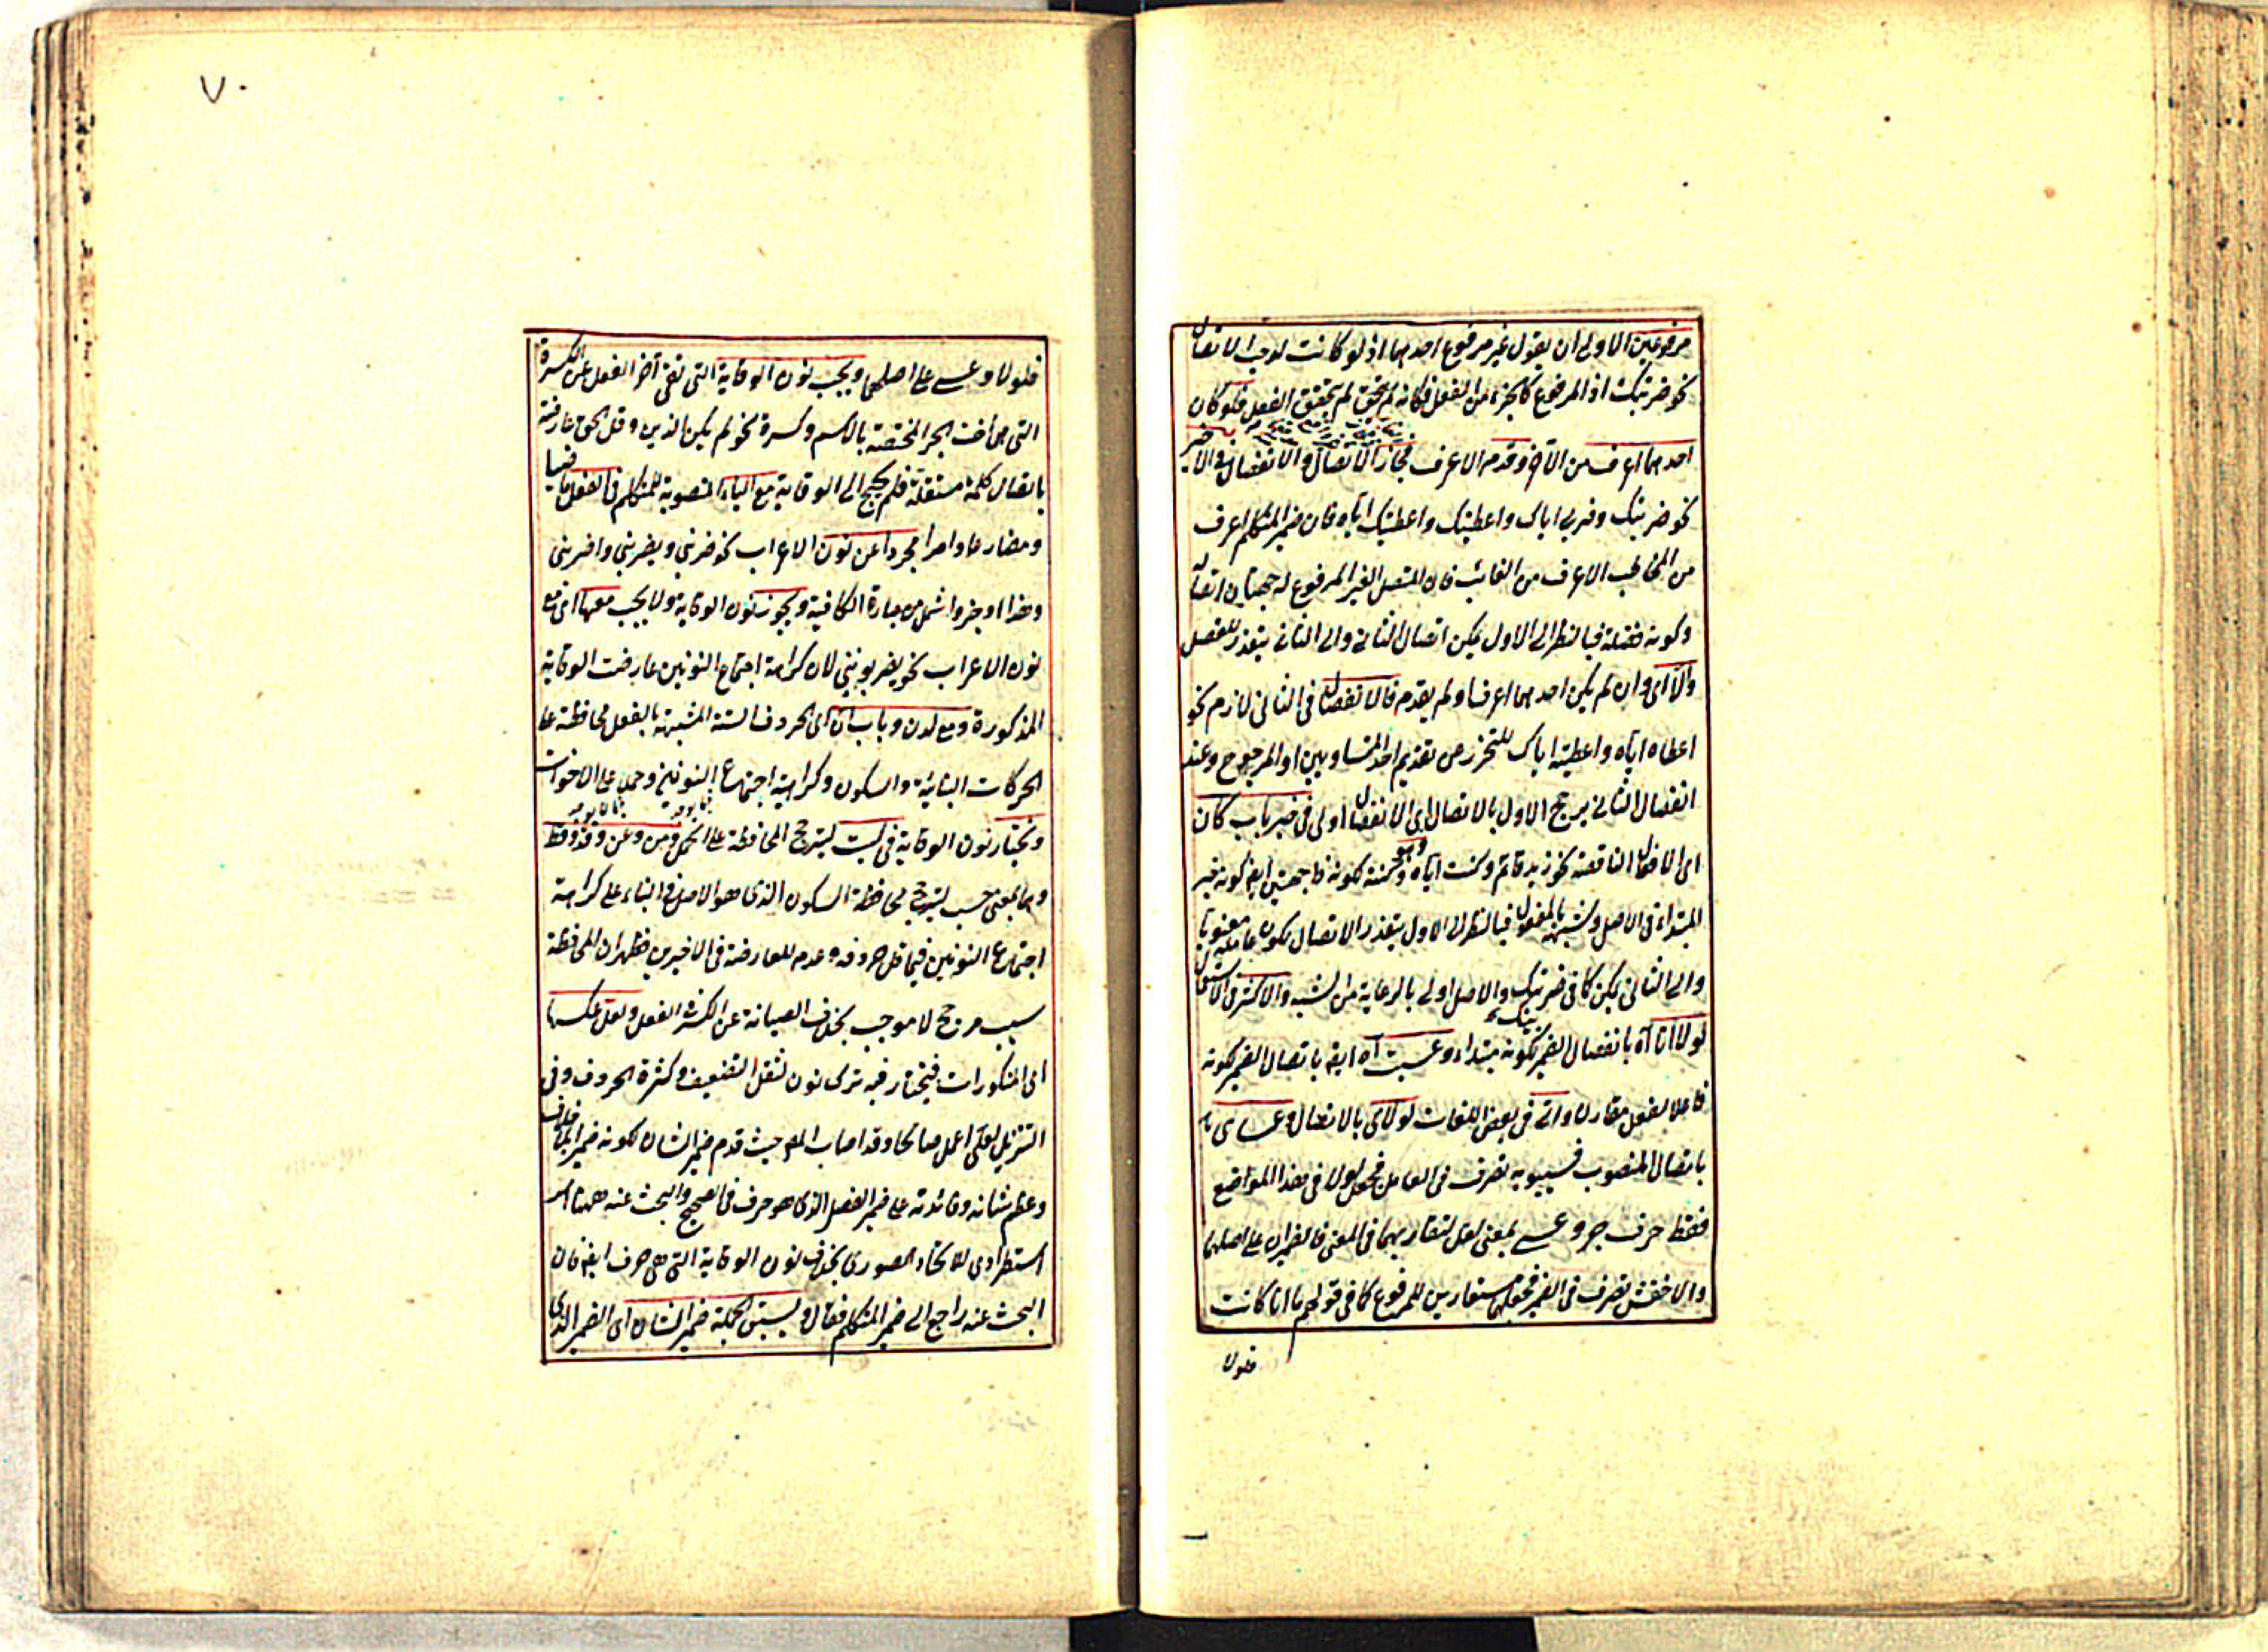 مرفوعين الاولى ان يقول غير مرفوع احدهما اذ لو كانت لوجب الاتصال
نحو ضربتك اذ المرفوع كالجزء من الفعل فكانه لم يتحقق الفعل فلو كان
احدهما اعرف من الآخر وقدم الاعرف فجاز الاتصال والانفصال في الاخير
نحو ضربتك وضربي اياك واعطيتك واعطيتك اياه فان ضمير المتكلم اعرف
من المخاطب الاعرف من الغائب فان المتصل الغير المرفوع له جهتان اتصاله
وكونه فضلة فبالنظر الى الاول يمكن اتصال الثاني والى الثاني يتعذر للفصل
والا اى وان لم يكن احدهما اعرف او لم يقدم فالانفصال في الثاني لازم نحو
اعطاه اياه واعطيته اياك للتحرز عن تقديم احد المتساويين او المرجوح وعند
انفصال الثاني يرجح الاول بالاتصال اى الانفصال اولى في خبر باب كان
اى الافعال الناقصة نحو زيد قائم وكنت اياه وكونه ذا جهتين ايضا كونه خبر
المبتداء في الاصل وشبهه بالمفعول فبالنظر الى الاول يتعذر الاتصال لكون عامله معنويا
والى الثاني يمكن كما في ضربتك والاصل اولى بالرعاية من الشبه والاكثر في الاستعمال
لولا انا آه بانفصال الضمير لكونه مبتداء وعسيت آه ايضا باتصال الضمير لكونه
فاعلا لفعل مقارن واتى في بعض اللغات لولاى بالاتصال وعساى
باتصال المنصوب فسيبويه تصرف في العامل فجعل لولا في هذا المواضع
فقط حرف جر وعسى بمعنى لعل لتقاربهما في المعنى فالضميران على اصلهما
والاخفش تصرف في الضمير فجعلهما مستعارين للمرفوع كما في قولهم ما انا كانت
فلولا
٧٠
فلولا وعسى على اصلهما ويجب نون الوقاية التي تقى آخر الفعل عن الكسرة
التي هى اخت الجر المختصة بالاسم وكسرة نحو لم يكن الذين وقل الحق عارضة
باتصال كلمة مستقلة فلم يحتج الى الوقاية مع الياء المنصوبة للمتكلم في الفعل ماضيا
ومضارعا وامرا مجردا عن نون الاعراب نحو ضربني ويضربني واضربني
وهذا اوجز واشمل من عبارة الكافية ويجوز نون الوقاية ولا يجب معها اى مع
نون الاعراب نحو يضربونني لان كراهة اجتماع النونين عارضت الوقاية
المذكورة ومع لدن وباب ان اى الحروف الستة المشبهة بالفعل محافظة على
الحركات البنائية والسكون وكراهية اجتماع النونين وحمل على الاخوات
ويختار نون الوقاية في ليت لترجح المحافظة على الحمل ومن وعن وقد وقط
وهما بمعنى حسب لترجح محافظة السكون الذى هو الاصل في البناء على كراهة
اجتماع النونين فيما قل حروفه وعدم المعارضة في الاخيرين فظهر ان المحافظة
سبب مرجح لا موجب بخلاف الصيانة عن الكسر الفعل ولعل عكسها
اى المذكورات فيختار فيه ترك نون لثقل التضعيف وكثرة الحروف وفي
التنزيل لعلى اعمل صالحا وقد اصاب المص حيث قدم ضمير الشان لكونه ضميرا بلا خلاف
وعظم شانه وفائدته على ضمير الفصل الذى هو حرف في الصحيح والبحث عنه ههنا امر
استطرادى للاتحاد الصورى بخلاف نون الوقاية التي هى حرف ايضا فان
البحث عنه راجع الى ضمير المتكلم فقال ويسبق الجملة ضمير الشان اى الضمير الذى